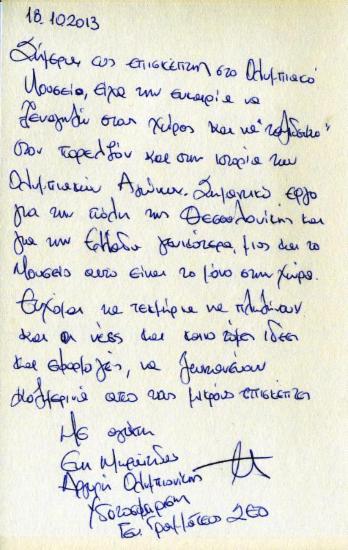 18.10.2013
Σήμερα, ως επισκέπτης στο Ολυμπιακό
Μουσείο, είχα την ευκαιρία να
ξεναγηθώ στους χώρους και να "ταξιδέψω"
στον παρελθόν και στην ιστορία των
Ολυμπιακών Αγώνων. Σημαντικό έργο
για την πόλη της Θεσσαλονίκης και
για την Ελλάδα γενικότερα, μιας και το
Μουσείο αυτό είναι το μόνο στην χώρα.
Εύχομαι τα τεκμήρια να πληθαίνουν
και οι νέες και καινοτόμες ιδέες
και εφαρμογές, να
καθημερινά από τους μικρούς επισκέπτες
Με αγάπη
Αργυρή Ολυμπιονίκης
Γεν. Γραμματέας ΣΕΟ